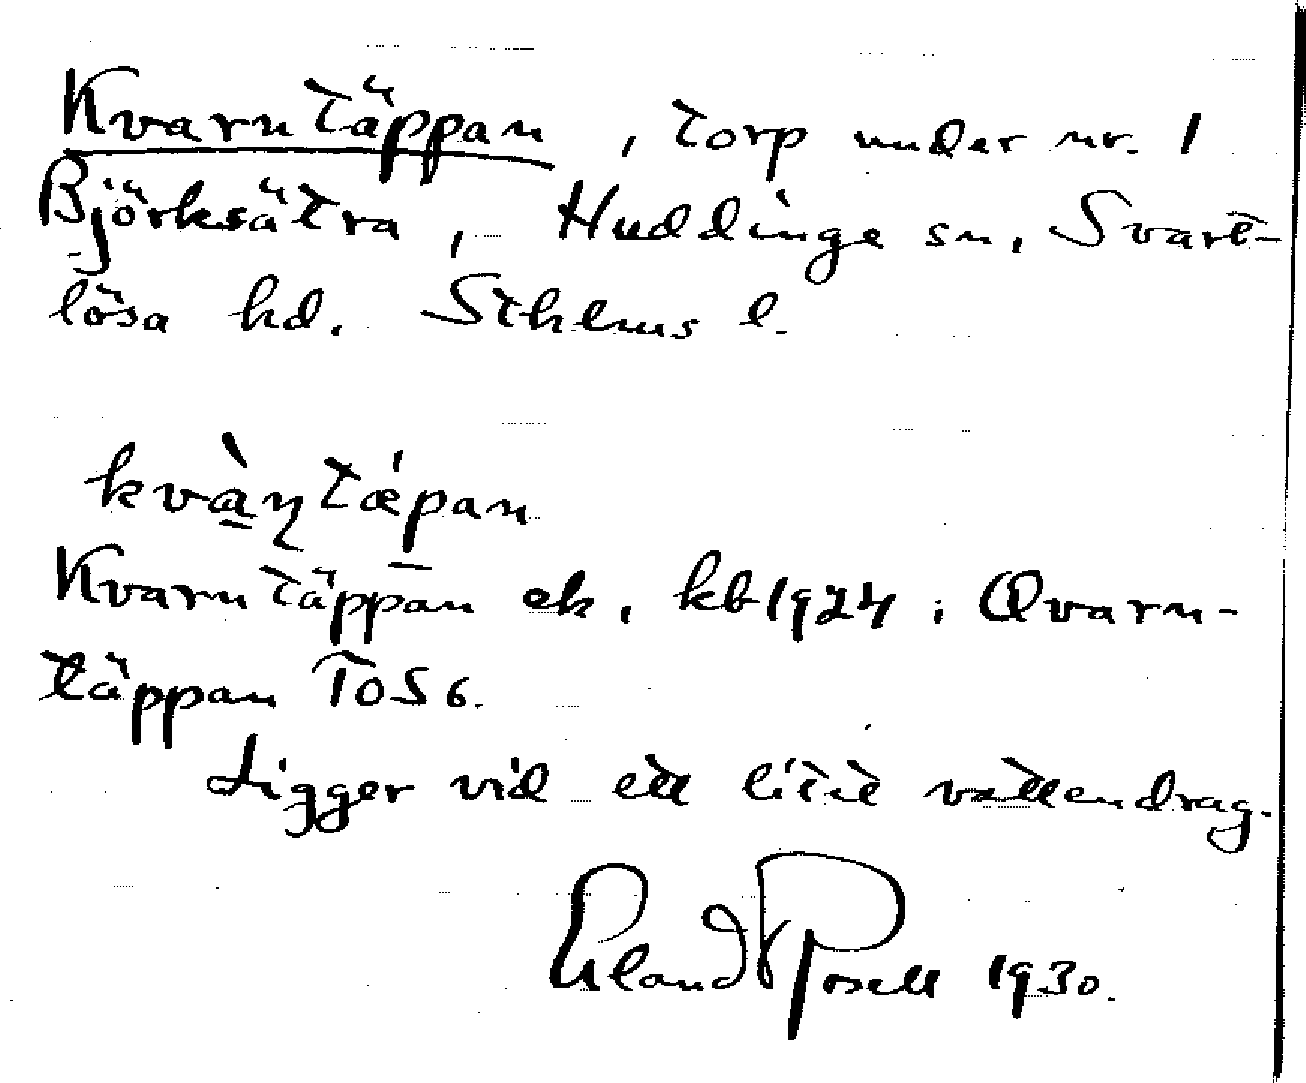 Kvarntäppan, torp under nr. 1
Björksätra, Huddinge sn, Svart-
lösa hd. Sthlms l.
kvàɳtǽpan
Kvarntäppan ek, kb 1924; Qvarn-
täppan ToS 6.
Ligger vid ett litet vattendrag.
Erland Rosell 1930.